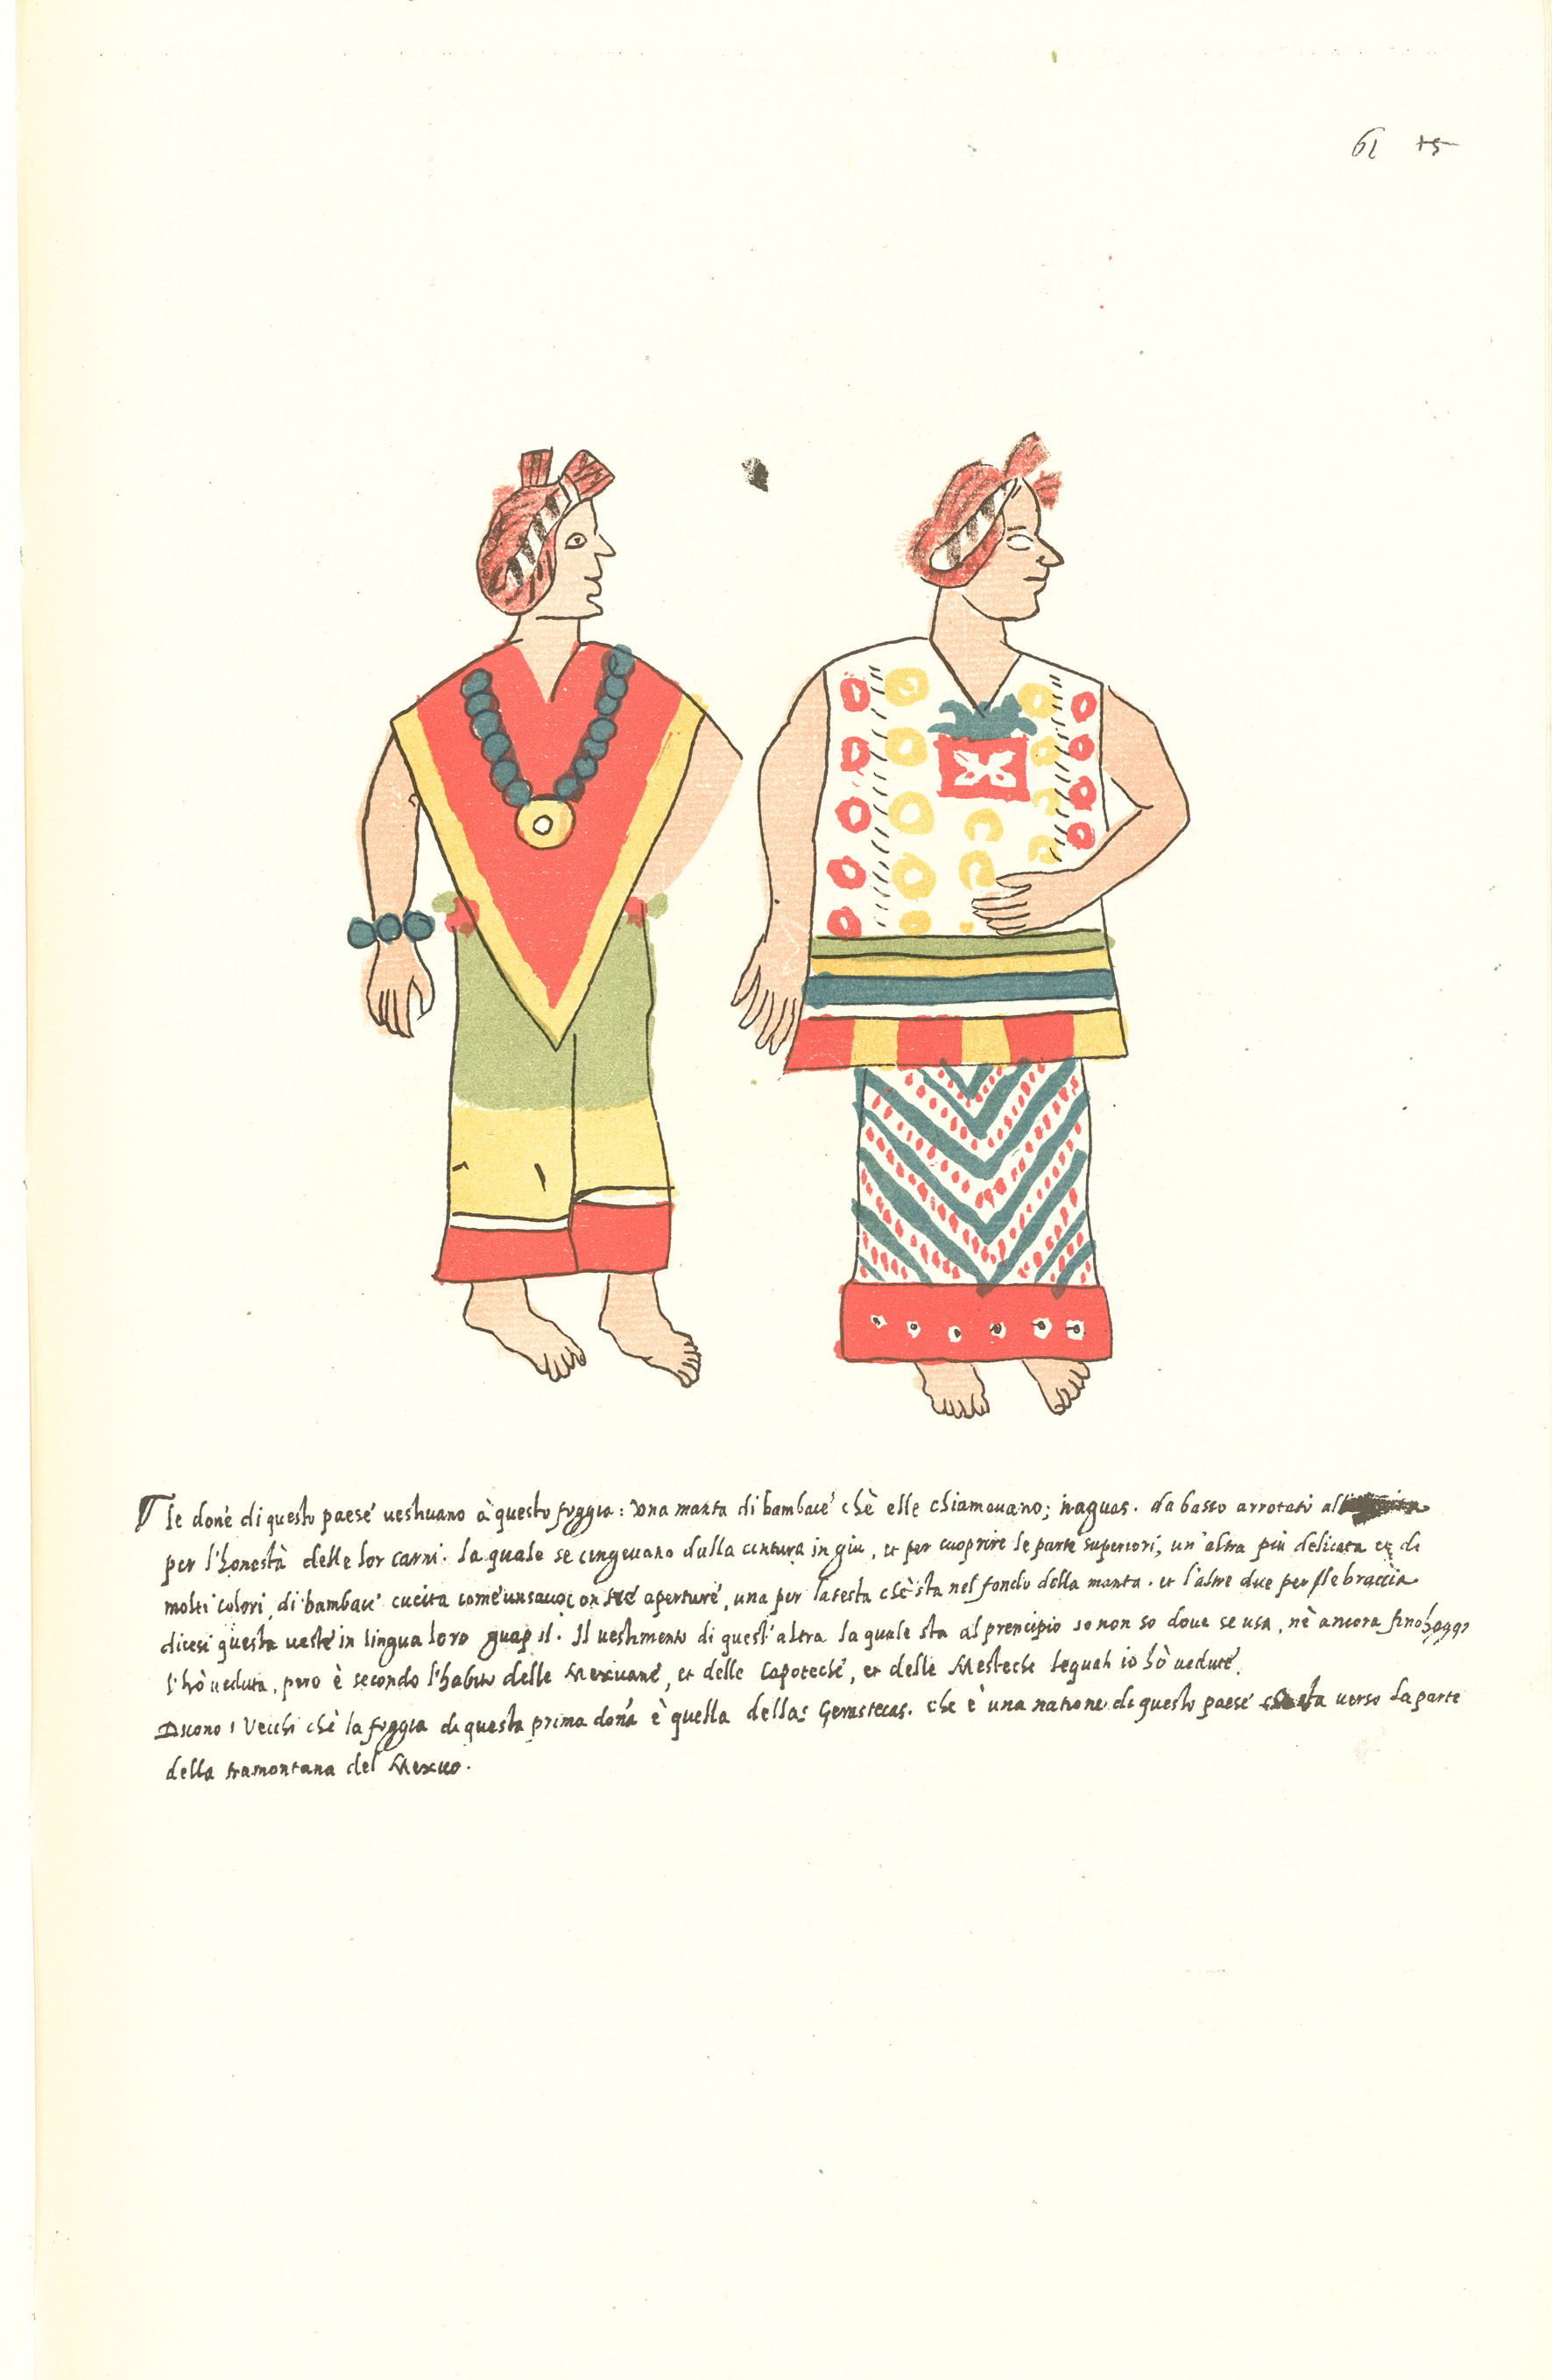 61 +5
Le done di questo paese uestiuano à questa foggia: una manta di bambace chè elle chiamauano; naguas. da basso arrotati
per l'honestà delle lor carni. la quale se cingeuano dalla centura in giu, et per cuoprire le parte superiori, un'altra più delicata et di
molti colori, di bambace cucita come un sacco con tre aperture, una per la testa che sta nel fondo della manta. et l'altre due per le braccia
dicesi questa ueste in lingua loro guapil. Il uestimento di quest'altra la quale sta al prencipio io non so doue se usa, nè ancora fino hoggi
l'hò ueduta, pero è secondo l'habito delle Mexicane, et delle Capoteche, et delle Misteche lequali io hò uedute.
Dicono i Vecchi chè la foggia di questa prima dona è quella della: Guastecas. che è una natione di questo paese uerso la parte
della tramontana del Mexico.